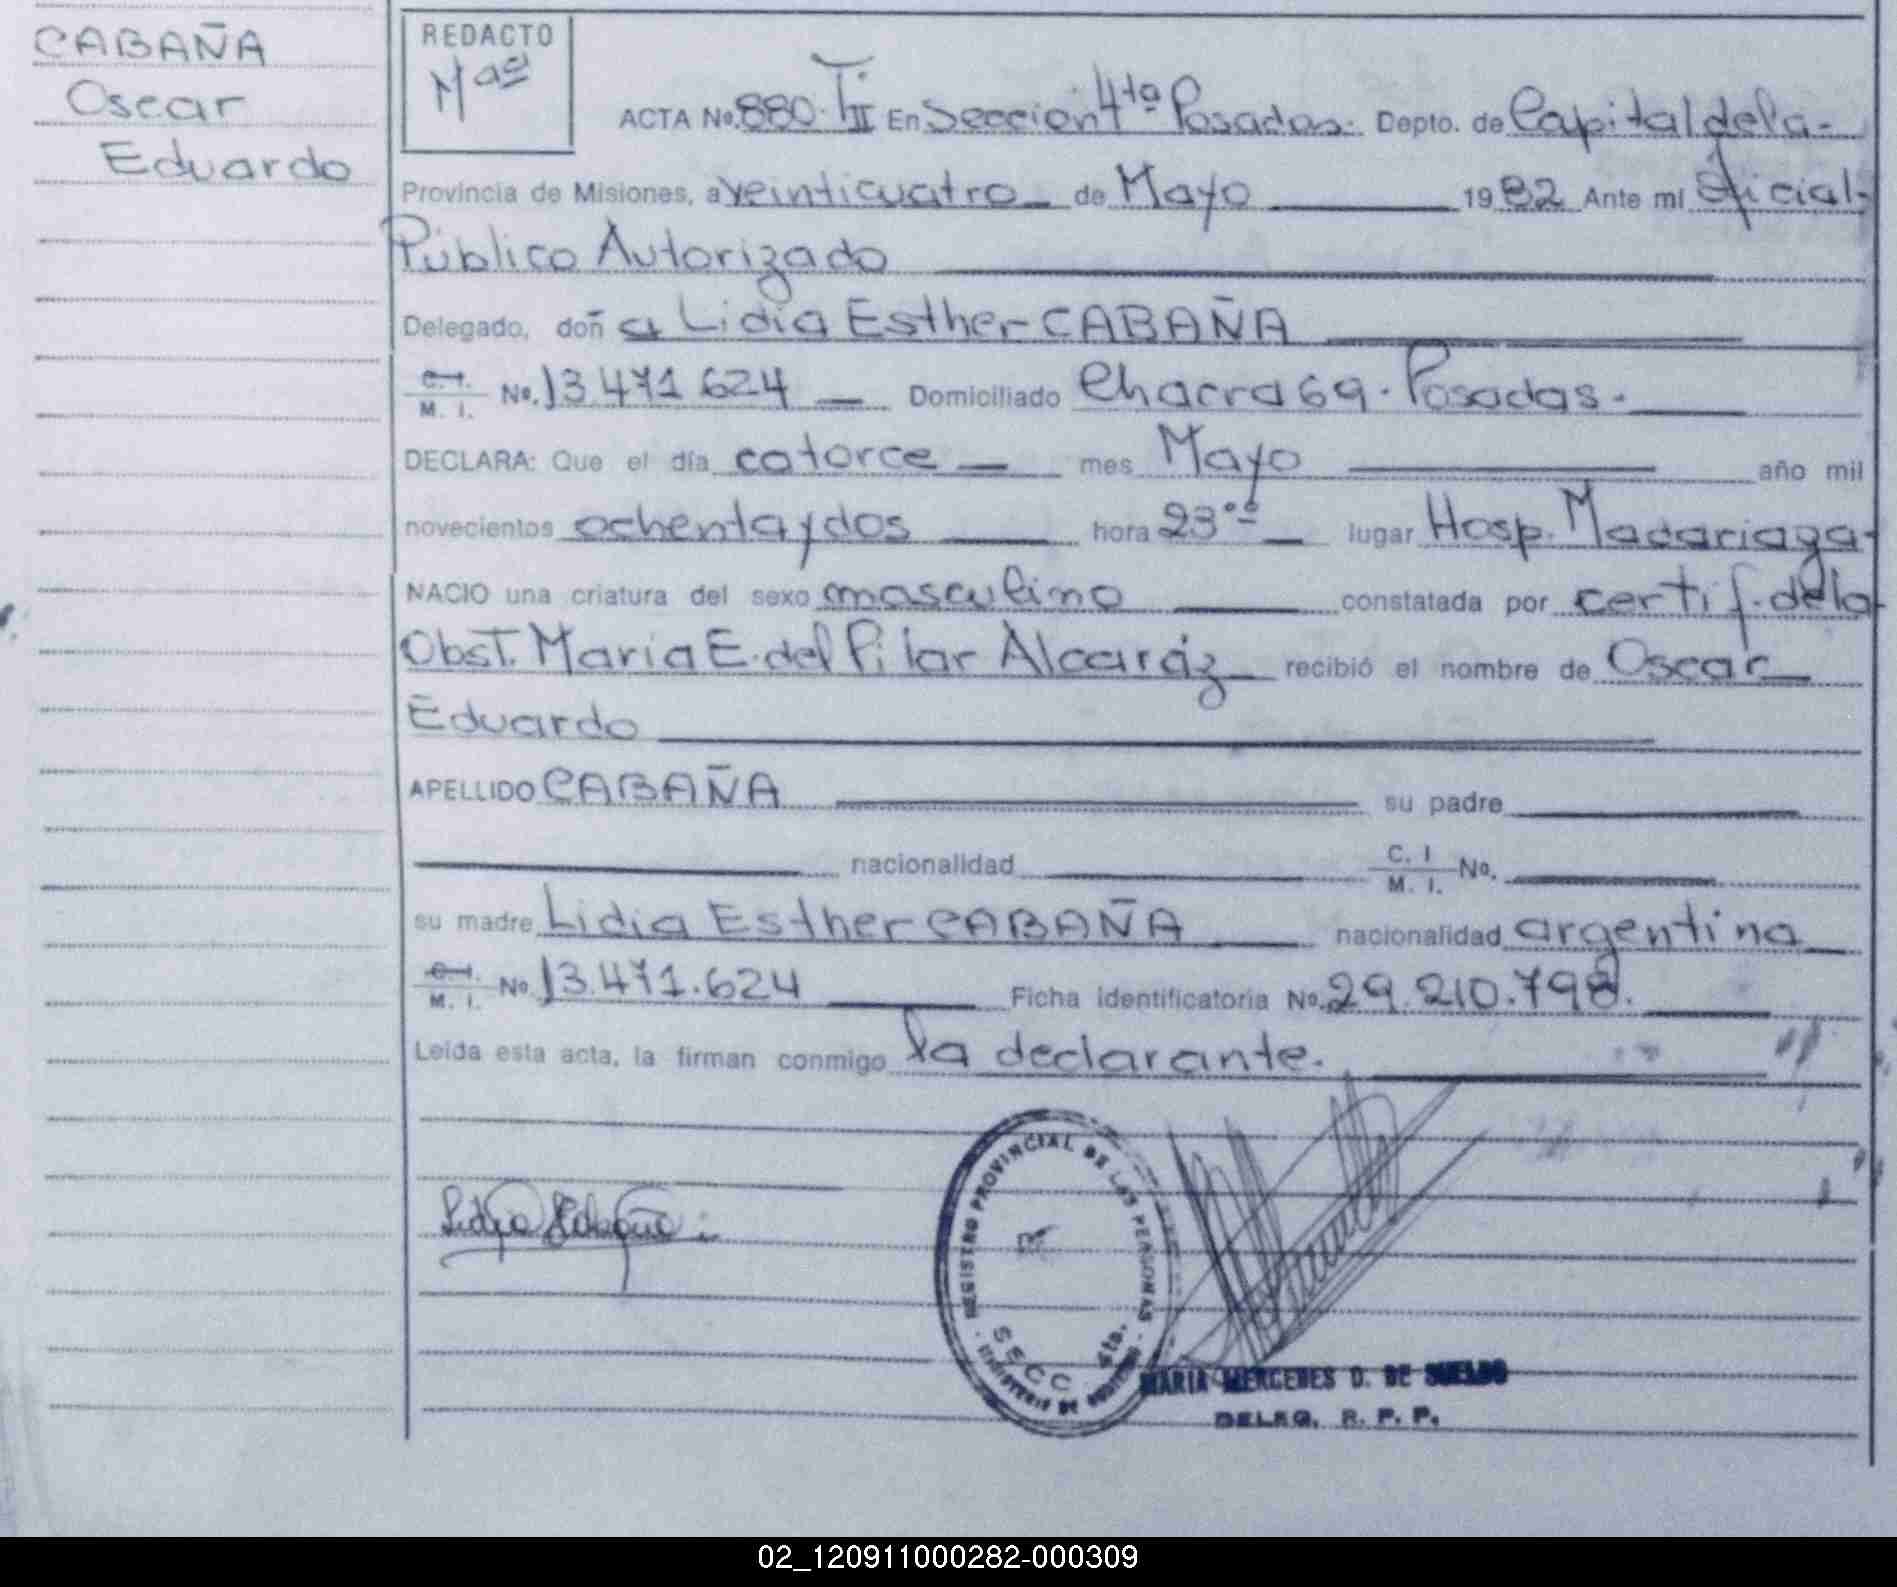 CABAÑA
Oscar
Eduardo
REDACTO
ACTA No. 880. T II En Sección 4ta Posadas. Depto. de Capital de la
Provincia de Misiones, a veinticuatro de Mayo 1982 Ante mi Oficial
Público Autorizado
Delegado, doña Lidia Esther CABAÑA
C.I. M. I. No. 13.471.624 Domiciliado Chacra 69. Posadas.
DECLARA: Que el día catorce mes Mayo año mil
novecientos ochenta y dos hora 23 oo lugar Hosp. Madariaga
NACIO una criatura del sexo masculino constatada por certif. de la
Obst. Maria E. del Pilar Alcaráz recibió el nombre de Oscar
Eduardo
APELLIDO CABAÑA su padre
nacionalidad C. I M. I. No.
su madre Lidia Esther CABAÑA nacionalidad argentina
C.I. M. I. No 13.471.624 Ficha identificatoria No. 29.210.798.
Leída esta acta, la firman conmigo la declarante.
REGISTRO PROVINCIAL DE LAS PERSONAS
SECC 4ta.
MARIA MERCEDES D. DE SUELDO
DELEG. R. P. P.
02_120911000282-000309